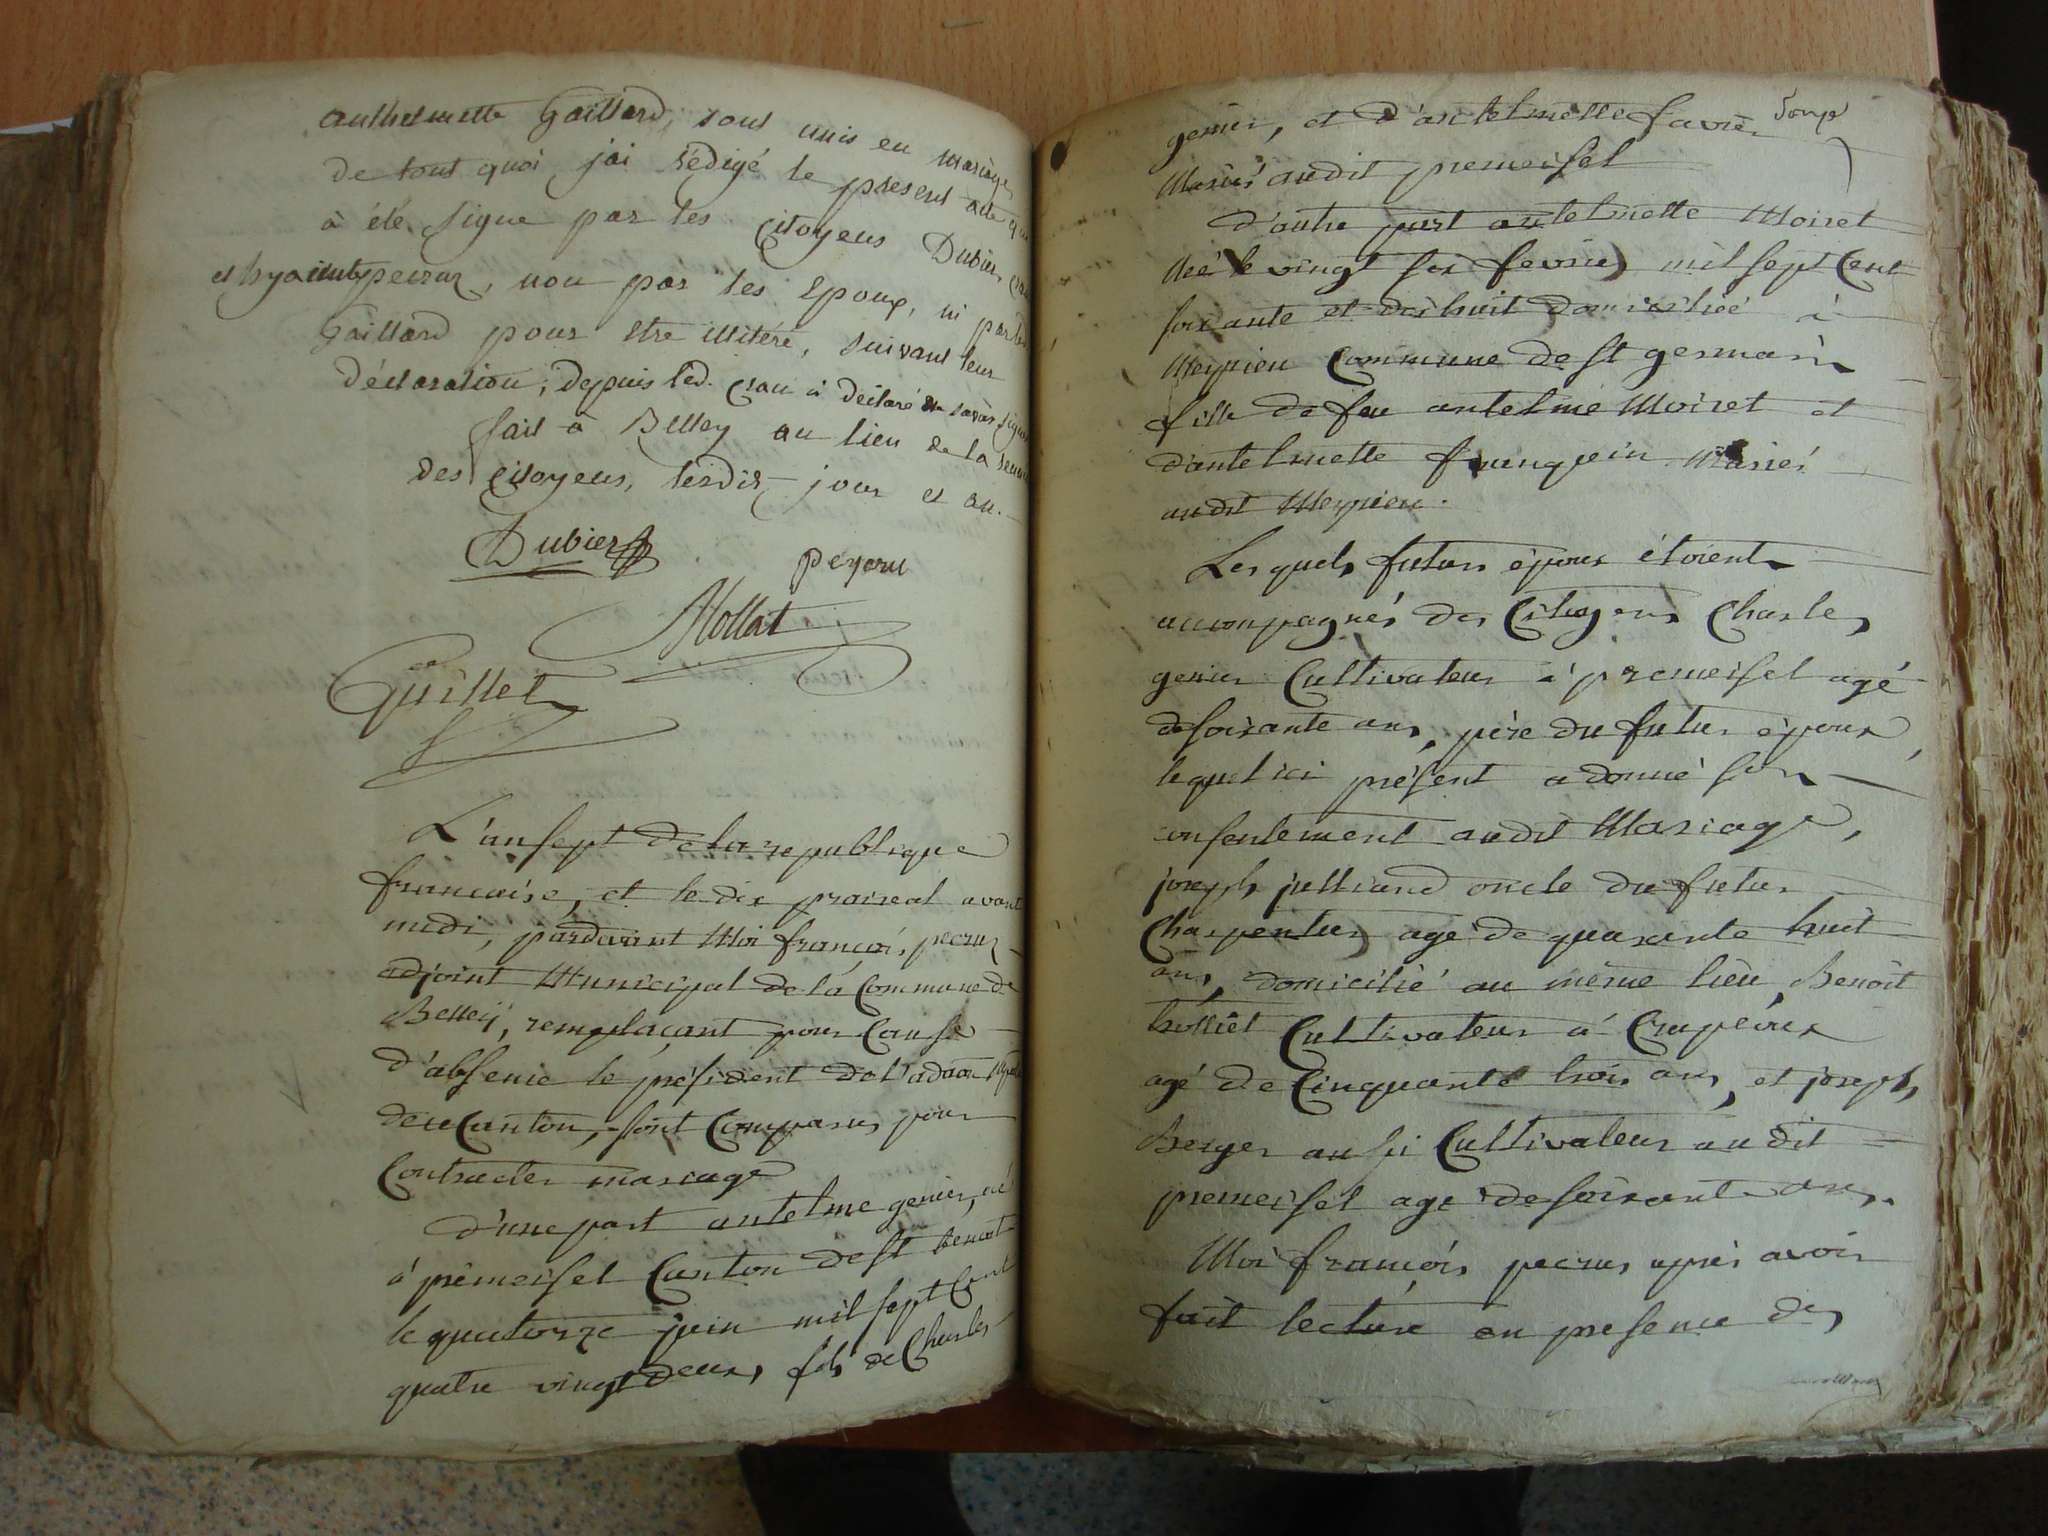 anthelmette Gaillard, sont unis en mariage
de tout quoi j'ai rédigé le present acte qui
à été signe par les Citoyens Dubier,
et hyainte peizon, non par les Epoux, ni par led.
Gaillard pour etre illiteré, suivant leur
déclaration, depuis led. Crau à déclaré savoir signer
fait à Belley au lieu de la
des Citoyens, lesdits jour et an.
Dubier
peysou
Mollat
Guillet
L'an sept de la republique
francaise, et le dix praireal avant
midi, pardevant Moi françois pecrus
adjoint Municipal de la Commune de
Belleÿ, remplaçant pour Cause
d'absence le président de l'adaon Mpale
de ce Canton, sont Comparus pour
Contracter mariage
d'une part antelme genier, né
à prémeisel Canton de St benoit
le quatorze juin mil sept Cent
quatre vingt deux, fils de Charles
genier, et d'antelmette favier
Mariés audit premeisel
d'autre part antelmette Moiret
Neé le vingt six fevrier mil sept Cent
soixante et dix huit domiciliée à
Meyrieu Commune de St germain
fille de feu antelme Moiret et
d'antelmette franquin Mariés
audit Meyrieu.
Lesquels futurs époux étoient
accompagnés des Citoyens Charles
genier Cultivateur à premeisel agé
de soixante ans, père du futur époux
lequel ici présent a donné son
consentement audit Mariage,
joseph julliand oncle du futur
Charpentier agé de quarante huit
ans, domicilié au même lieu, Benoît
trolliet Cultivateur à Crapéoux
agé de Cinquante trois ans, et joseph
Berger aussi Cultivateur audit
premeisel agé de soixante ans.
Moi françois pecrus après avoir
fait lecture en presence des